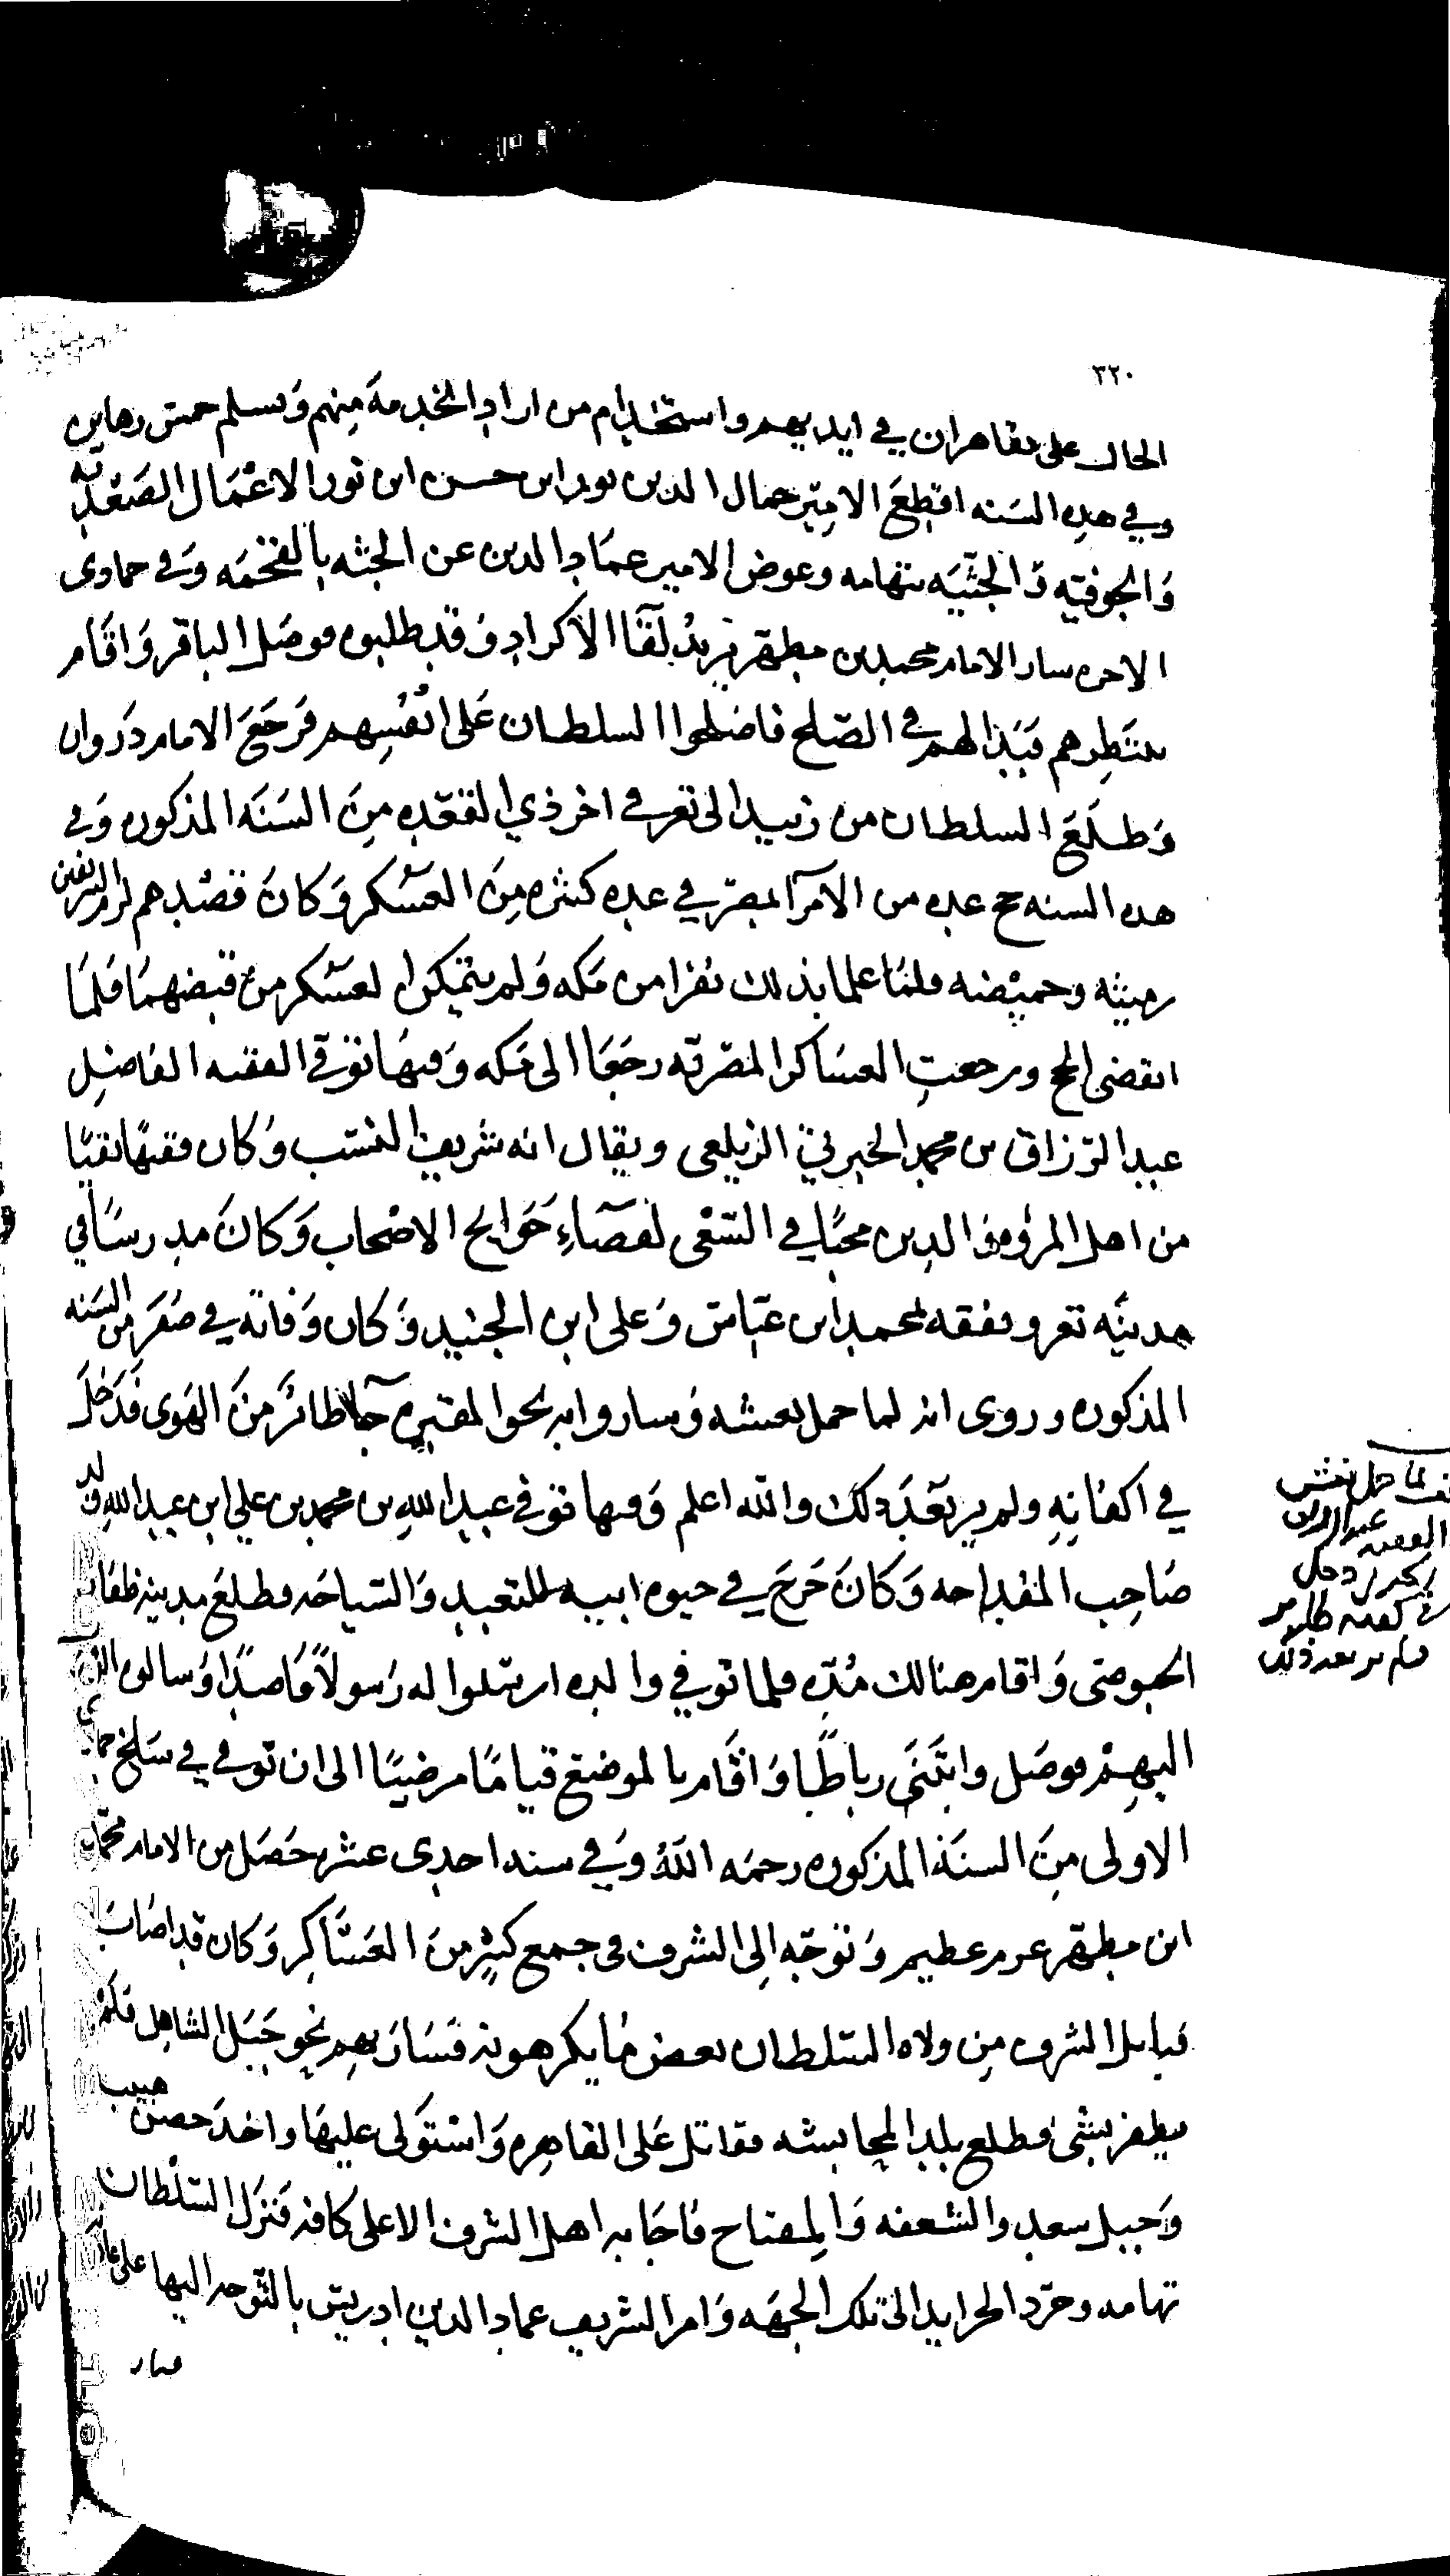 ٣٢٠
الحال على بقاهران في ايديهم واستخدام من اراد الخدمة منهم وتسلم خمس رهاين
وفي هذه السنه اقطع الامير جمال الدين نور ابن حسن ابن نور الاعمال الصعديه
والجوفيه والجثيه بتهامه وعوض الامير عماد الدين عن الجثه بالفخمه وفي جمادى
الاخره سار الامام محمد بن مطهر يريد لقا الاكراد وقد طلبوه فوصل الباقر واقام
ينتظرهم فبذا لهم في الصلح فاصلحوا السلطان على انفسهم فرجع الامام دروان
وطلع السلطان من زبيد الى تعز في اخر ذي القعده من السنه المذكوره وفي
هذه السنه حج عده من الامرآ المصر في عده كثيره من العسكر وكان قصدهم لزم الشريفين
رميثه وحميضه فلما علما بذلك نفرا من مكه ولم يتمكن العسكر من قبضهما فلما
انقضى الحج ورجعت العساكر المصريه رجعا الى مكه وفيها توفي الفقيه الفاضل
عبد الرزاق بن محمد الجبرتي الزيلعي ويقال انه شريف النسب وكان فقيها تقيا
من اهل المروه والدين محبا في السعي لقضاء حوايج الاصحاب وكان مدرسا في
مدينه تعز وتفقه لمحمد ابن عباس وعلى ابن الجنيد وكان وفاته في صفر من السنه
المذكوره وروى انه لما حمل نعشه وساروا به نحو المقبره جآ طائر من الهوى فدخل
في اكفانه ولم ير بعد ذلك والله اعلم وفيها توفي عبد الله بن محمد بن علي ابن عبد الله ولد
صاحب المقداحه وكان خرج في حيوه ابيه للتعبد والسياحه فطلع مدينه ظفار
الحبوضي واقام هنالك مده فلما توفي والده ارسلوا له رسولا قاصدا وسالوه
اليهم فوصل وابتنى رباطا واقام بالموضع قياما مرضيا الى ان توفي في سلخ جما
الاولى من السنه المذكوره رحمه الله وفي سنه احدى عشر حصل من الامام محمد
ابن مطهر عزم عظيم وتوجه الى الشرف في جمع كثير من العساكر وكان قد اصاب
قبايل الشرف من ولاه السلطان بعض ما يكرهونه فسار بهم نحو جبل الشاهل فلم
يظفر بشئ فطلع بلد المحابشه فقاتل على القاهره واستولى عليها واخذ حصن هبيب
وجبل سعد والشعفه والمفتاح فاجابه اهل الشرف الاعلى كافه فنزل السلطان
تهامه وجرد الجرايد الى تلك الجهه وامر الشريف عماد الدين ادريس بالتوجه اليها على
فسار
لما حمل نعش
الفقيه
عبد الرزاق
دخل
في كفنه طاير
فلم ير بعد ذلك